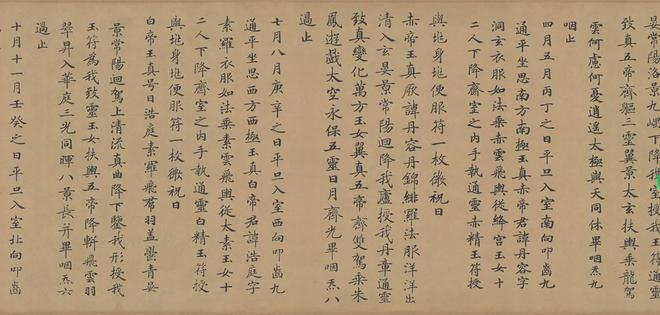 晏景常陽洛景九迴下降我室授我玉符通靈
致真五帝齊軀三靈翼景太玄扶輿乘龍駕
雲何慮何憂逍遙太極與天同休畢咽炁九
咽止
四月五月丙丁之日平旦入室南向叩齒九
通平坐思南方南極玉真赤帝君諱丹容字
洞玄衣服如法乘赤雲飛輿從絳宮玉女十
二人下降齋室之內手執通靈赤精玉符授
與地身地便服符一枚微祝曰
赤帝玉真厥諱丹容丹錦緋羅法服洋洋出
清入玄晏景常陽迴降我廬授我丹章通靈
致真變化萬方玉女翼真五帝齊雙駕乘朱
鳳遊戲太空永保五靈日月齊光畢咽炁八
過止
七月八月庚辛之日平旦入室西向叩齒九
通平坐思西方西極玉真白帝君諱浩庭字
素羅衣服如法乘素雲飛輿從太素玉女十
二人下降齋室之內手執通靈白精玉符授
與地身地便服符一枚微祝曰
白帝玉真号曰浩庭素羅飛帬羽蓋鬱青晏
景常陽迴駕上清流真曲降下鑒我形授我
玉符為我致靈玉女扶輿五帝降軿飛雲羽
翠昇入華庭三光同暉八景長并畢咽炁六
過止
十月十一月壬癸之日平旦入室北向叩齒